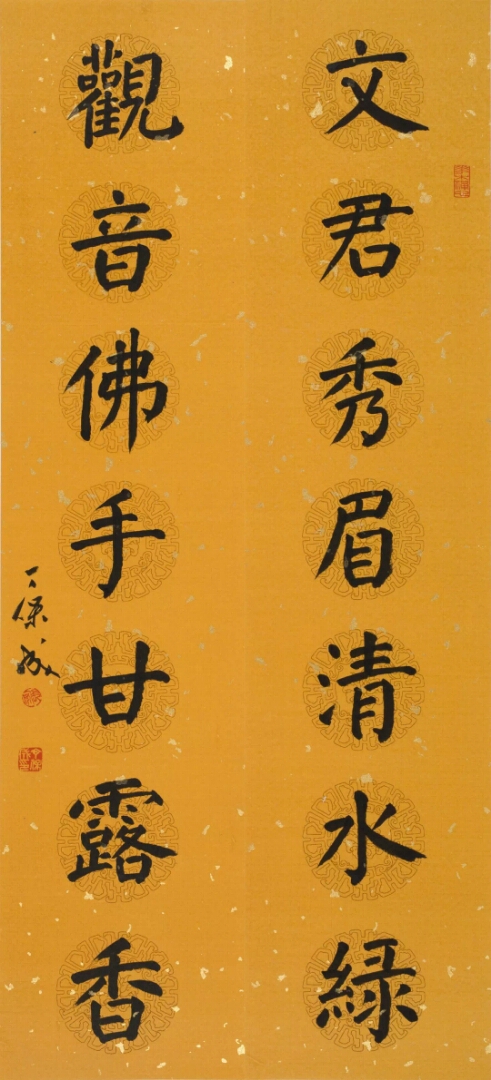 文君秀眉清水綠
觀音佛手甘露香